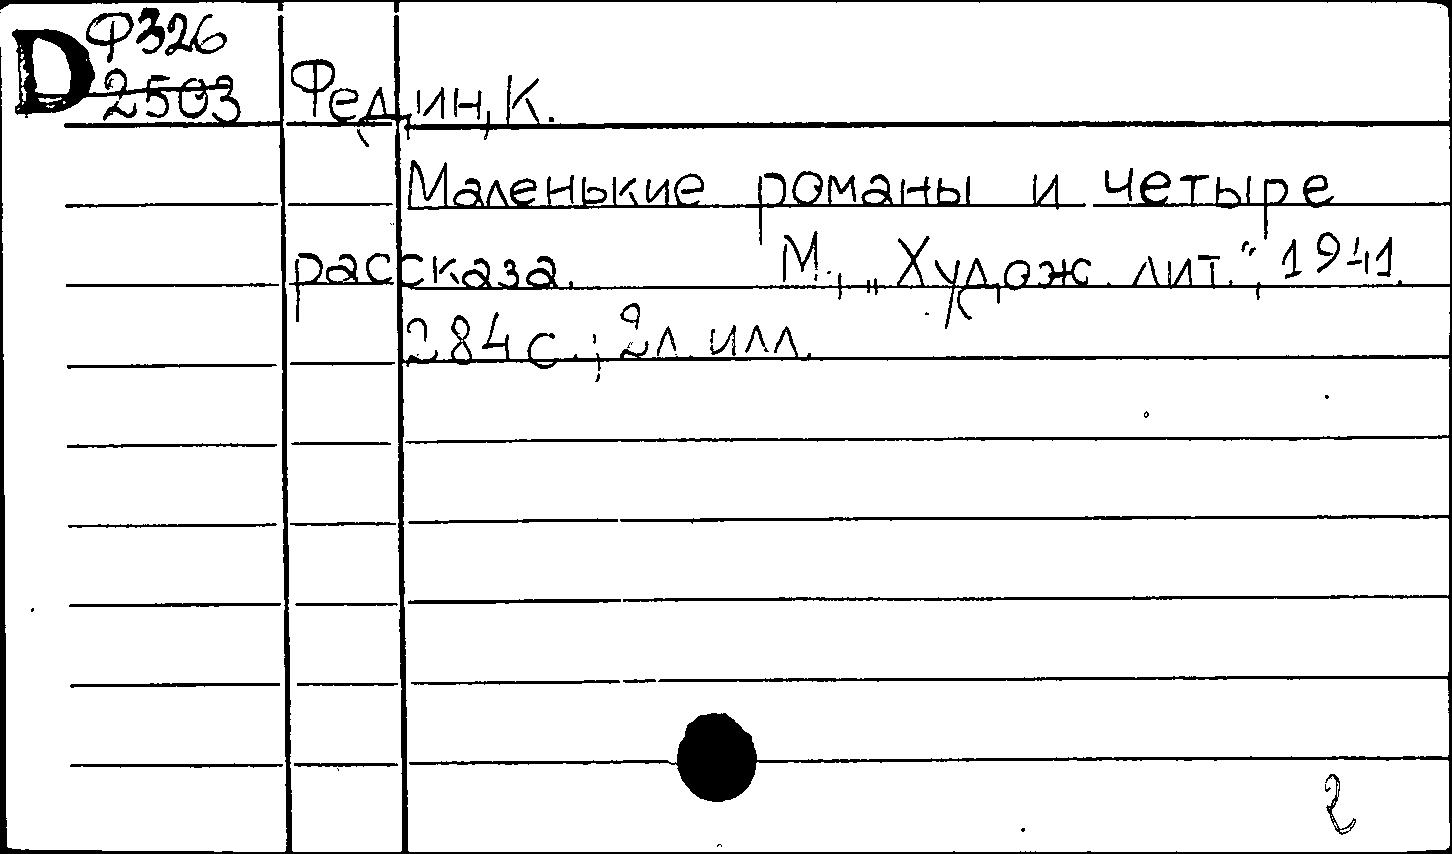 D Ф326
2503 Федин, К.
Маленькие романы и четыре
рассказа. М., „Худож. лит.“, 1941.
284 с.; 2 л. илл.
2